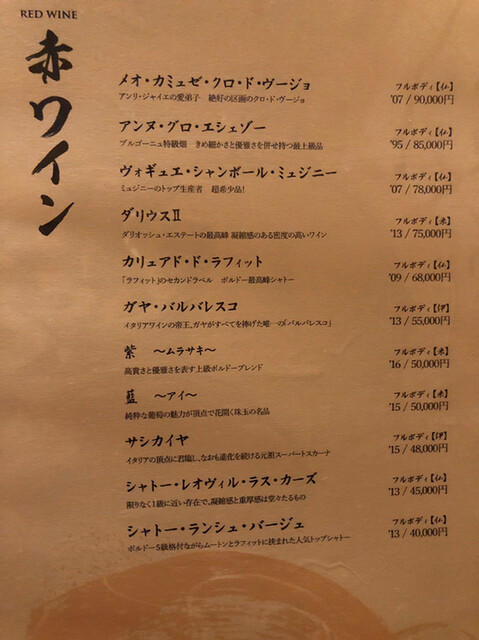 RED WINE
赤ワイン
メオ・カミュゼ・クロ・ド・ヴージョ
フルボディ【仏】
アンリ・ジャイエの愛弟子 絶好の区画のクロ・ド・ヴージョ
'07 / 90,000円
アンヌ・グロ・エシェゾー
フルボディ【仏】
ブルゴーニュ特級畑 きめ細かさと優雅さを併せ持つ最上級品
'95 / 85,000円
ヴォギュエ・シャンボール・ミュジニー
フルボディ【仏】
ミュジニーのトップ生産者 超希少品!
'07 / 78,000円
ダリウスII
フルボディ【米】
ダリオッシュ・エステートの最高峰 凝縮感のある密度の高いワイン
'13 / 75,000円
カリュアド・ド・ラフィット
フルボディ【仏】
「ラフィット」のセカンドラベル ボルドー最高峰シャトー
'09 / 68,000円
ガヤ・バルバレスコ
フルボディ【伊】
イタリアワインの帝王、ガヤがすべてを捧げた唯一の「バルバレスコ」
'13 / 55,000円
紫 〜ムラサキ〜
フルボディ【米】
高貴さと優雅さを表す上級ボルドーブレンド
'16 / 50,000円
藍 〜アイ〜
フルボディ【米】
純粋な葡萄の魅力が頂点で花開く珠玉の名品
'15 / 50,000円
サシカイヤ
フルボディ【伊】
イタリアの頂点に君臨し、なおも進化を続ける元祖スーパートスカーナ
'15 / 48,000円
シャトー・レオヴィル・ラス・カーズ
フルボディ【仏】
限りなく1級に近い存在で、凝縮感と重厚感は堂々たるもの
'13 / 45,000円
シャトー・ランシュ・バージュ
フルボディ【仏】
ボルドー5級格付ながらムートンとラフィットに挟まれた人気トップシャトー
'13 / 40,000円